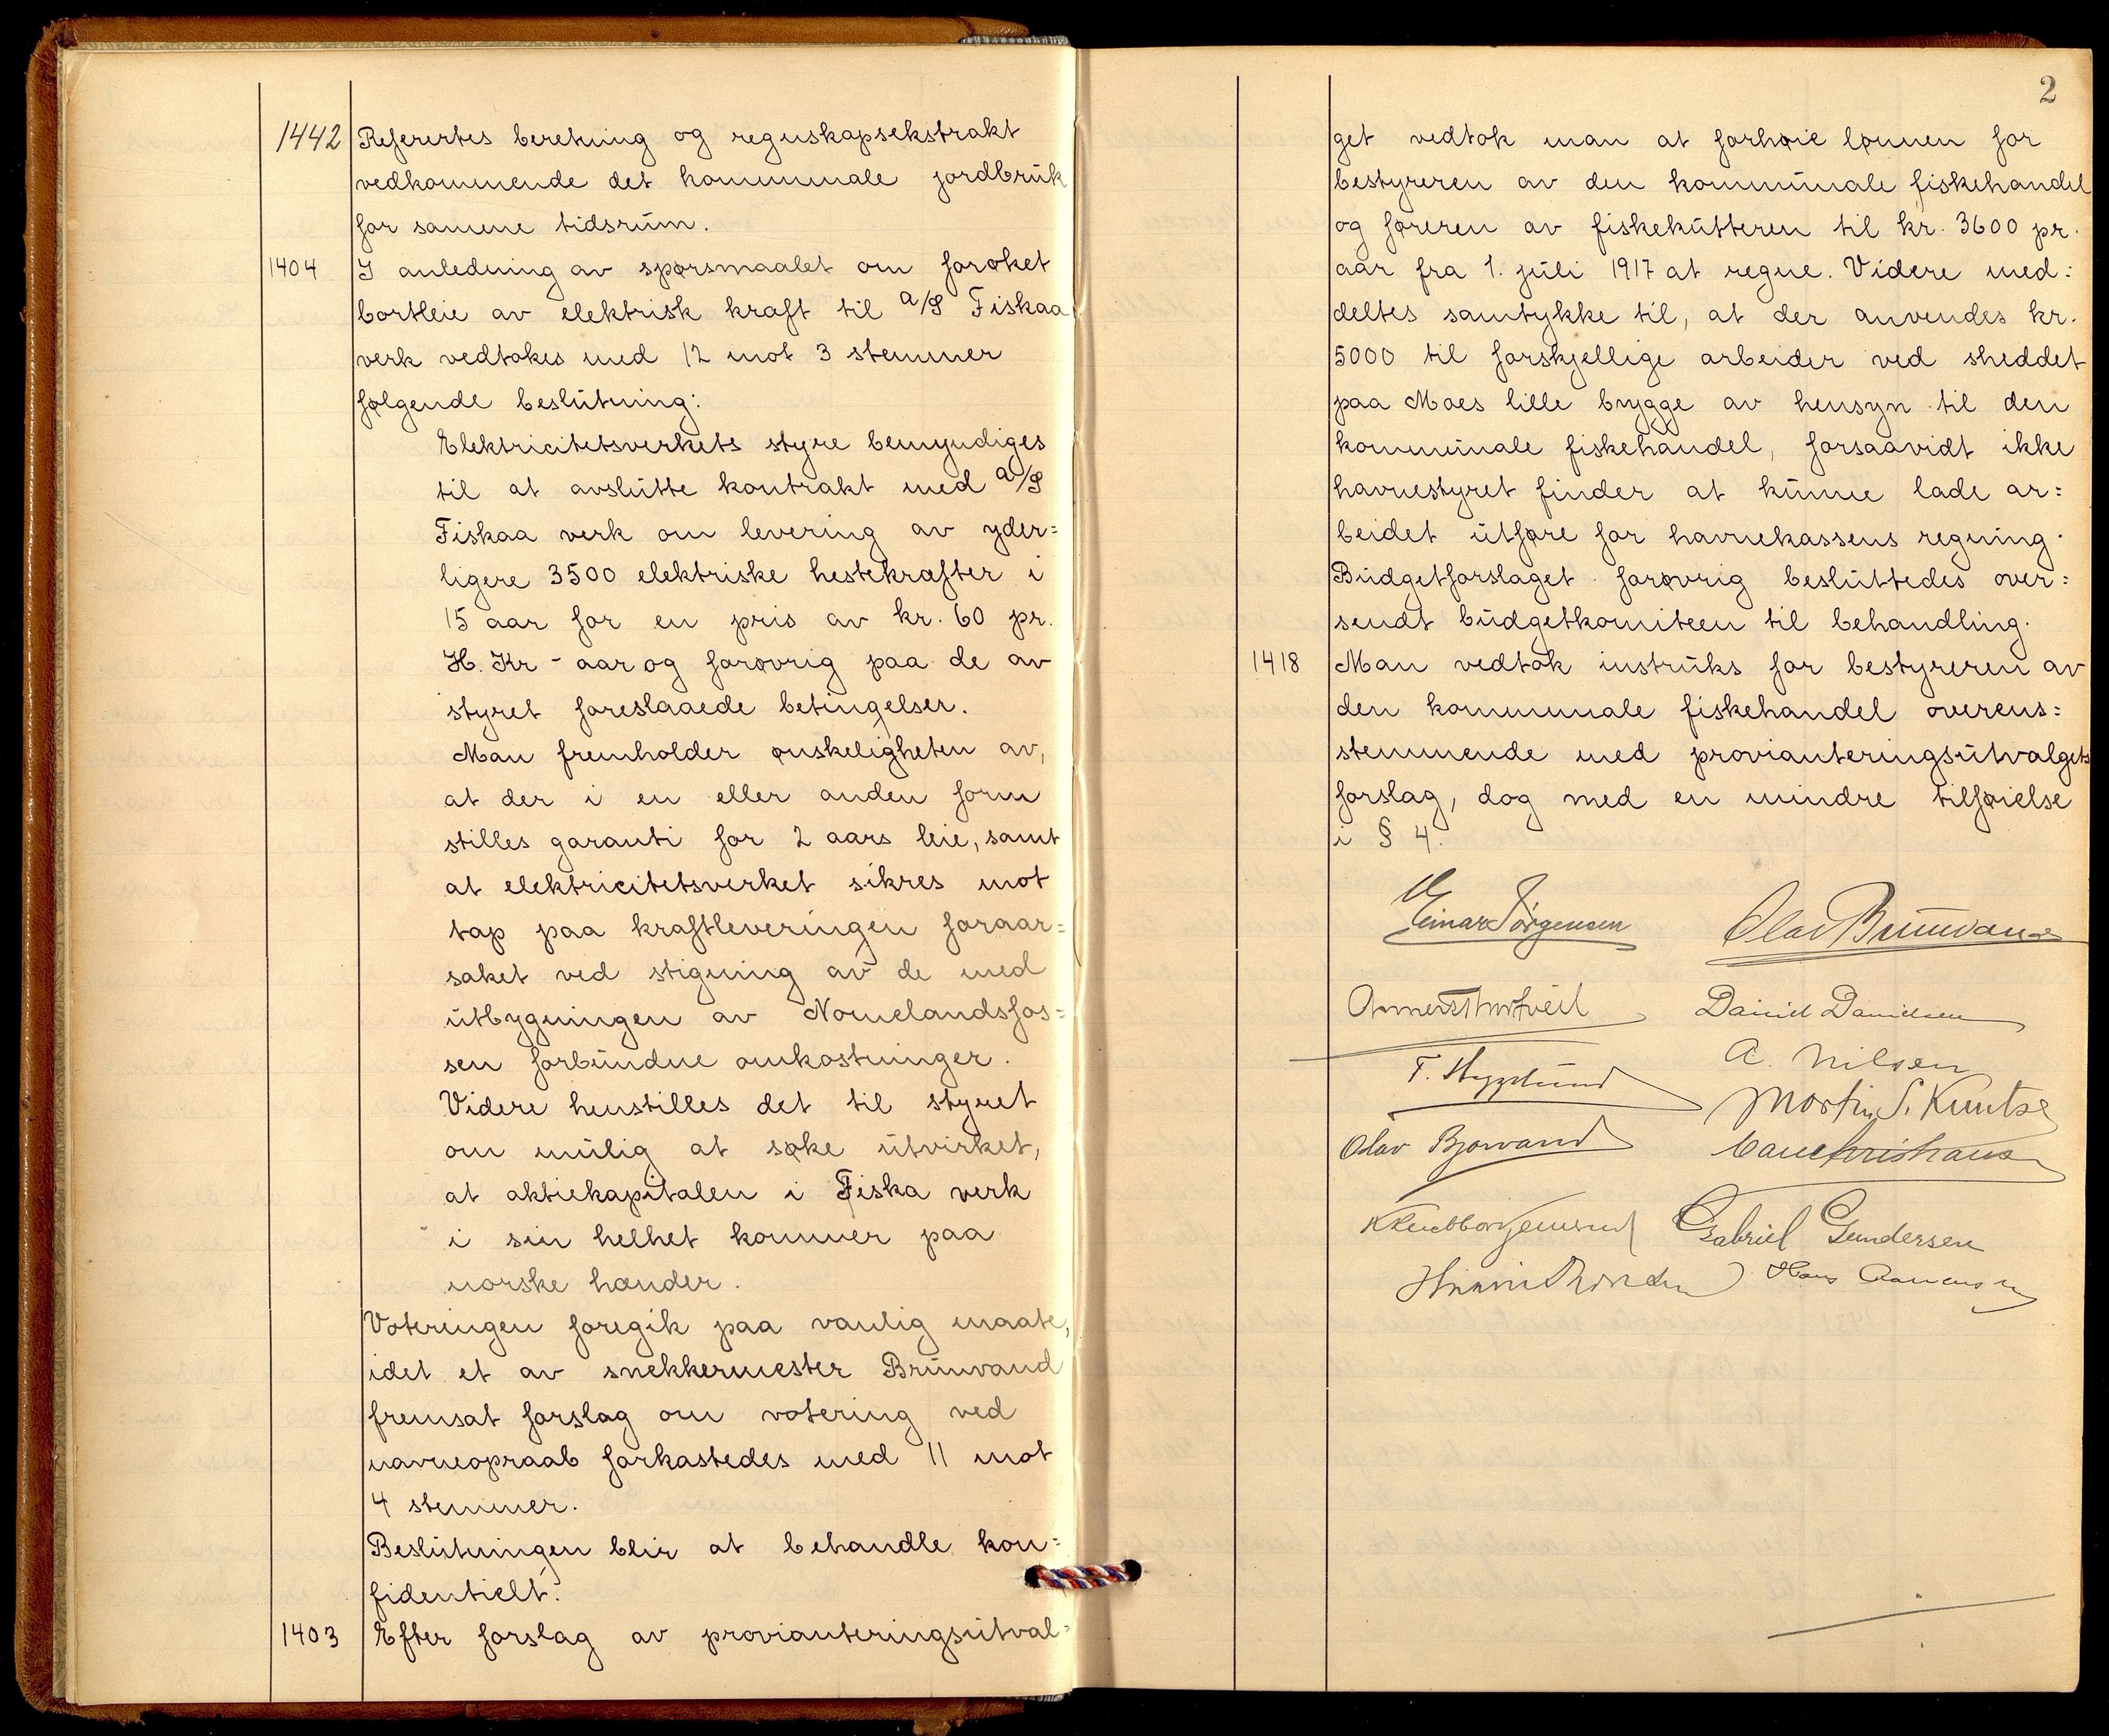 1442 Referertes beretning og regnskapsekstrakt
vedkommende det kommunale jordbruk
for samme tidsrum.
1404 I anledning av spørsmaalet om forøket
bortleie av elektrisk kraft til A/S Fiskaa
verk vedtokes med 12 mot 3 stemmer
følgende beslutning:
Elektricitetsverkets styre bemyndiges
til at avslutte kontrakt med A/S
Fiskaa verk om levering av yder=
ligere 3500 elektriske hestekræfter i
15 aar for en pris av kr. 60 pr.
H. Kr - aar og forøvrig paa de av
styret foreslaaede betingelser.
Man fremholder ønskeligheten av,
at der i en eller anden form
stilles garanti for 2 aars leie, samt
at elektricitetsverket sikres mot
tap paa kraftleveringen foraar=
saket ved stigning av de med
utbygningen av Nomelandsfos=
sen forbundne omkostninger.
Videre henstilles det til styret
om mulig at søke utvirket,
at aktiekapitalen i Fiska verk
i sin helhet kommer paa
norske hænder.
Voteringen foregik paa vanlig maate,
idet et av snekkermester Brunvand
fremsat forslag om votering ved
navneopraab forkastedes med 11 mot
4 stemmer.
Beslutningen blir at behandle kon=
fidentielt.
1403 Efter forslag av provianteringsutval=
2
get vedtok man at forhøie lønnen for
bestyreren av den kommunale fiskehandel
og føreren av fiskekutteren til kr. 3600 pr.
aar fra 1. juli 1917 at regne. Videre med=
deltes samtykke til, at der anvendes kr.
5000 til forskjellige arbeider ved sheddet
paa Moes lille brygge av hensyn til den
kommunale fiskehandel, forsaavidt ikke
havnestyret finder at kunne lade ar=
beidet utføre for havnekassens regning.
Budgetforslaget forøvrig besluttedes over=
sendt budgetkomiteen til behandling.
1418 Man vedtok instruks for bestyreren av
den kommunale fiskehandel overens=
stemmende med provianteringsutvalgets
forslag, dog med en mindre tilføielse
i § 4.
Einar Jørgensen Olav Brunvand
Daniel Danielsen
A. Nilsen
Martin S. Kuntze
Olav Bjorvand
Gabriel Gundersen
Hans